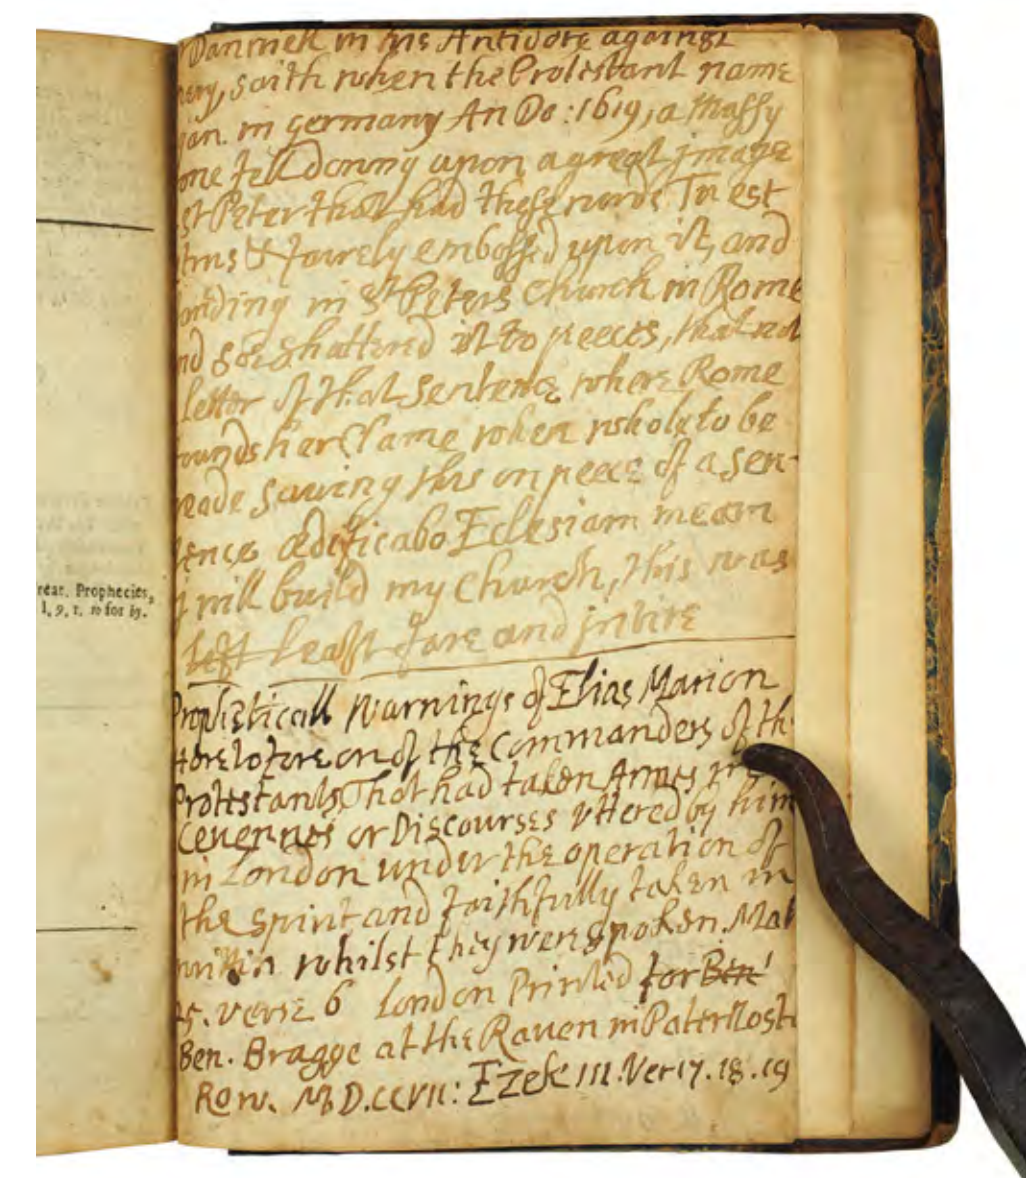 reat. Prophecies,
l, 9, r. to for by.
Danniell in his Antidote against
pery, saith when the Protestant name
gan. in germany An Do: 1619, a Massy
one fell downy upon a great jmage
st Peter that had these words Tu est
trus & fairely embossed upon it, and
anding in St Peters Church in Rome
nd soe shattered it to peeces, that not
letter of that Sentence where Rome
ounds her Clame when whole to be
reade saving this on peece of a sen-
tence ædificabo Eclesiam meam
I will build my Church, this was
left least fare and jntire
Propheticall Warnings of Elias Marion
Heretofore on of the Commanders of th
Protestants That had taken Armes in
Cevennes or Discourses vttered by him
in London under the operation of
the spirit and faithfully taken in
whilst they were spoken. Mat
25. verse 6 London Printed for Ben
Ben. Bragge at the Raven in Pater Nost
Row. MDCCVII: Ezek III. Ver 17. 18. 19